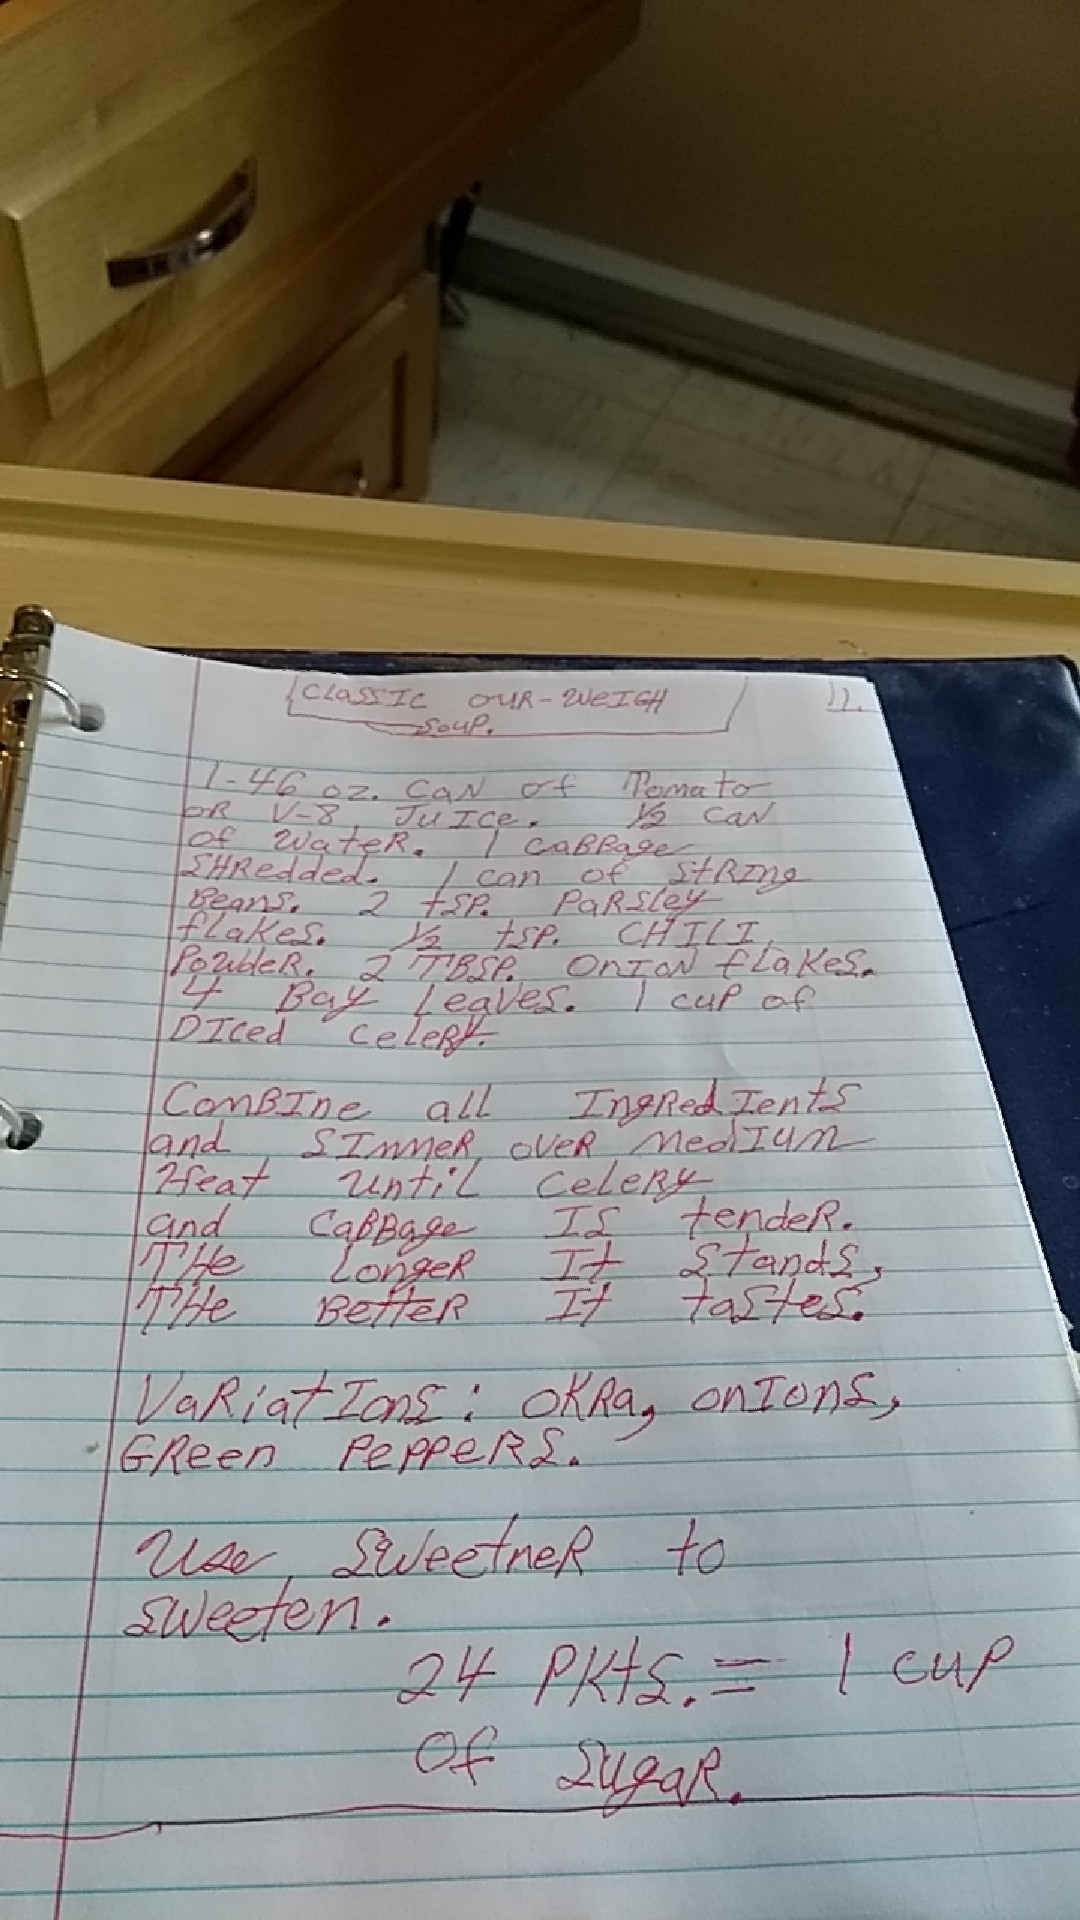 CLASSIC OUR-WEIGH 11.
SOUP.
1-46 oz. CAN of Tomato
OR V-8 JUICE. 1/2 CAN
of Water. 1 CABBage
SHRedded. 1 can of StRIng
Beans. 2 tSP. PaRSley
flakes. 1/2 tSP. CHILI
PowdeR. 2 TBSP. ONION flakes.
4 Bay Leaves. 1 cup of
DIced celeRy.
ComBIne all IngRedIentS
and SImmeR oveR medIum
Heat until celeRy
and CaBBage IS tendeR.
THe LongeR It StandS,
THe BetteR It taStes.
VaRiatIonS: OKRa, onIonS,
GReen PePPeRS.
Use SweetneR to
Sweeten.
24 PKtS. = 1 cup
of SugaR.